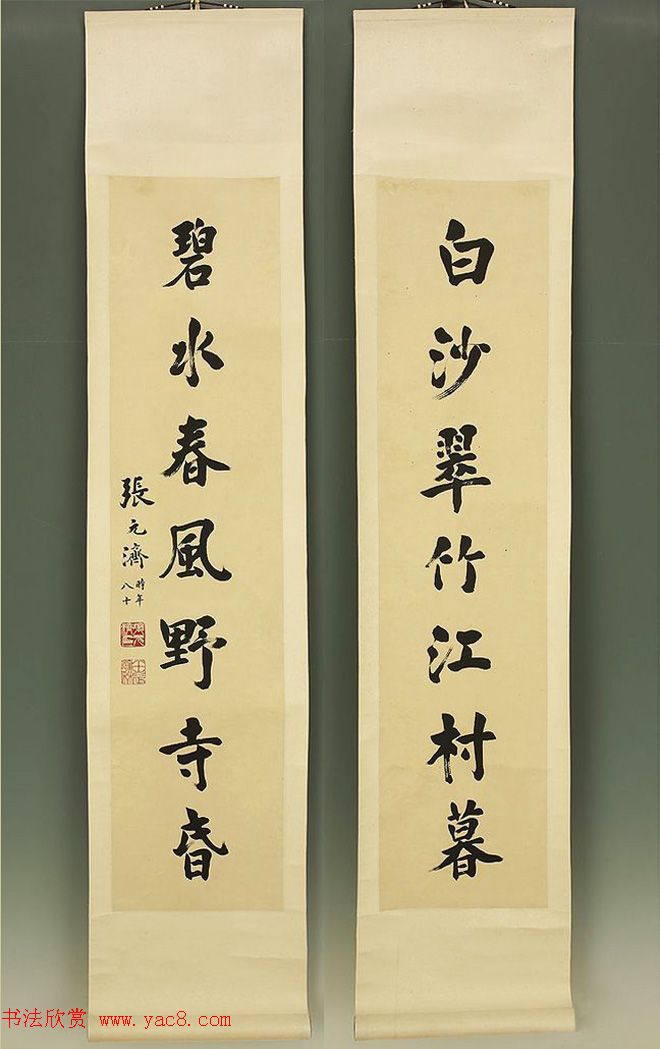 白沙翠竹江村暮
碧水春風野寺昏
張元濟時年
八十
书法欣赏 www.yac8.com